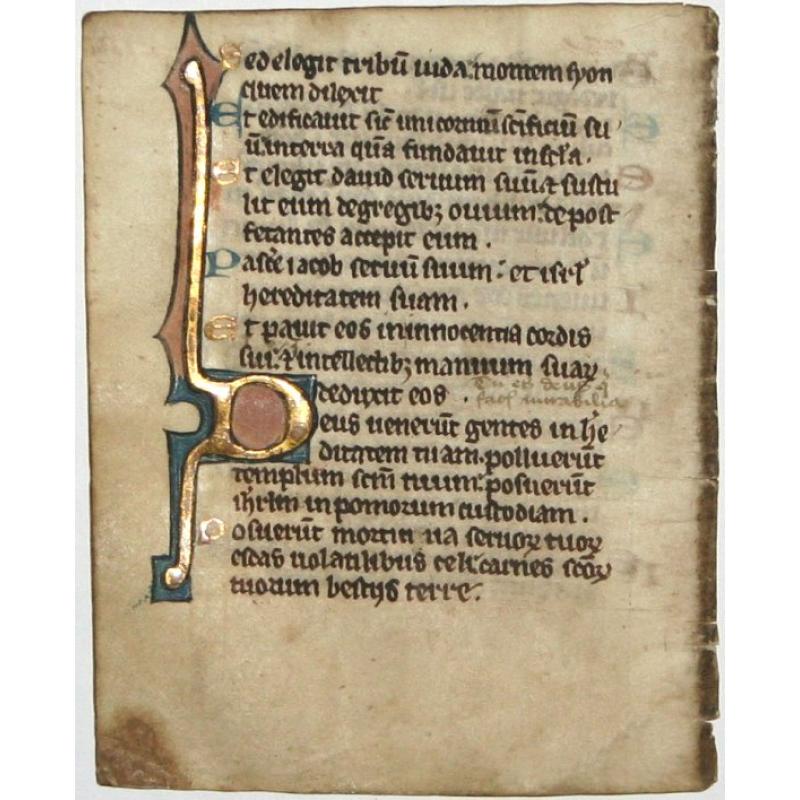 Sed elegit tribū iuda: montem syon
quem dilexit
Et edificauit sic̄ unicornuū sc̄ificiū su
ū: in terra quā fundauit in sc̄la .
Et elegit dauid seruum suū: ⁊ sustu
lit eum de gregibꝫ ouium: de post
fetantes accepit eum .
Pasc̄e iacob seruū suum: et isrl̄
hereditatem suam .
Et pauit eos in innocentia cordis
sui: ⁊ in intellectibꝫ manuum suaꝝ
dediuxit eos .
Tu es deus q̄
facis mirabilia
Deus uenerūt gentes in he
ditatem tuam: polluerūt
templum scm̄ tuum: posuerūt
ihrlm̄ in pomorum custodiam .
Posuerūt morticina seruoꝝ tuoꝝ
escas uolatilibus celi: carnes scōꝝ
tuorum bestijs terre .